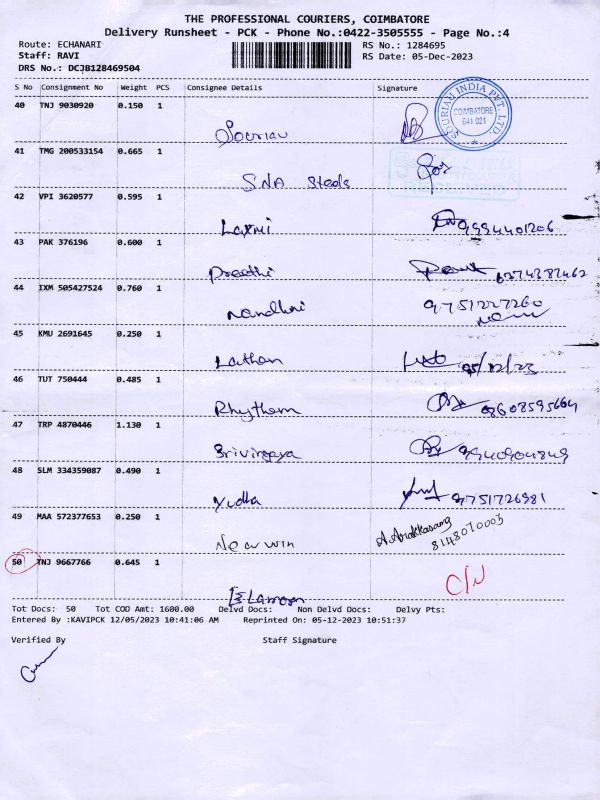 THE PROFESSIONAL COURIERS, COIMBATORE
Delivery Runsheet - PCK - Phone No.:0422-3505555 - Page No.:4
Route: ECHANARI RS No.: 1284695
Staff: RAVI RS Date: 05-Dec-2023
DRS No.: DCJB128469504
S No Consignment No Weight PCS Consignee Details Signature
40 TNJ 9030920 0.150 1
Souriau
SOURIAU INDIA PVT. LTD.
COIMBATORE
641 021
41 TMG 200533154 0.665 1
SNA Steels
42 VPI 3620577 0.595 1
Laxmi 9994401206
43 PAK 376196 0.600 1
Preethi
44 IXM 505427524 0.760 1
Nandhni 9751227260
45 KMU 2691645 0.250 1
Lathan 05/12/23
46 TUT 750444 0.485 1
Rhythem 08608595664
47 TRP 4870446 1.130 1
Srivinaya 9940904849
48 SLM 334359087 0.490 1
Yudha 9751726981
49 MAA 572377653 0.250 1
Newwin 8148070003
50 TNJ 9667766 0.645 1
C/N
Tot Docs: 50 Tot COD Amt: 1600.00 Delvd Docs: Non Delvd Docs: Delvy Pts:
Entered By :KAVIPCK 12/05/2023 10:41:06 AM Reprinted On: 05-12-2023 10:51:37
Verified By Staff Signature